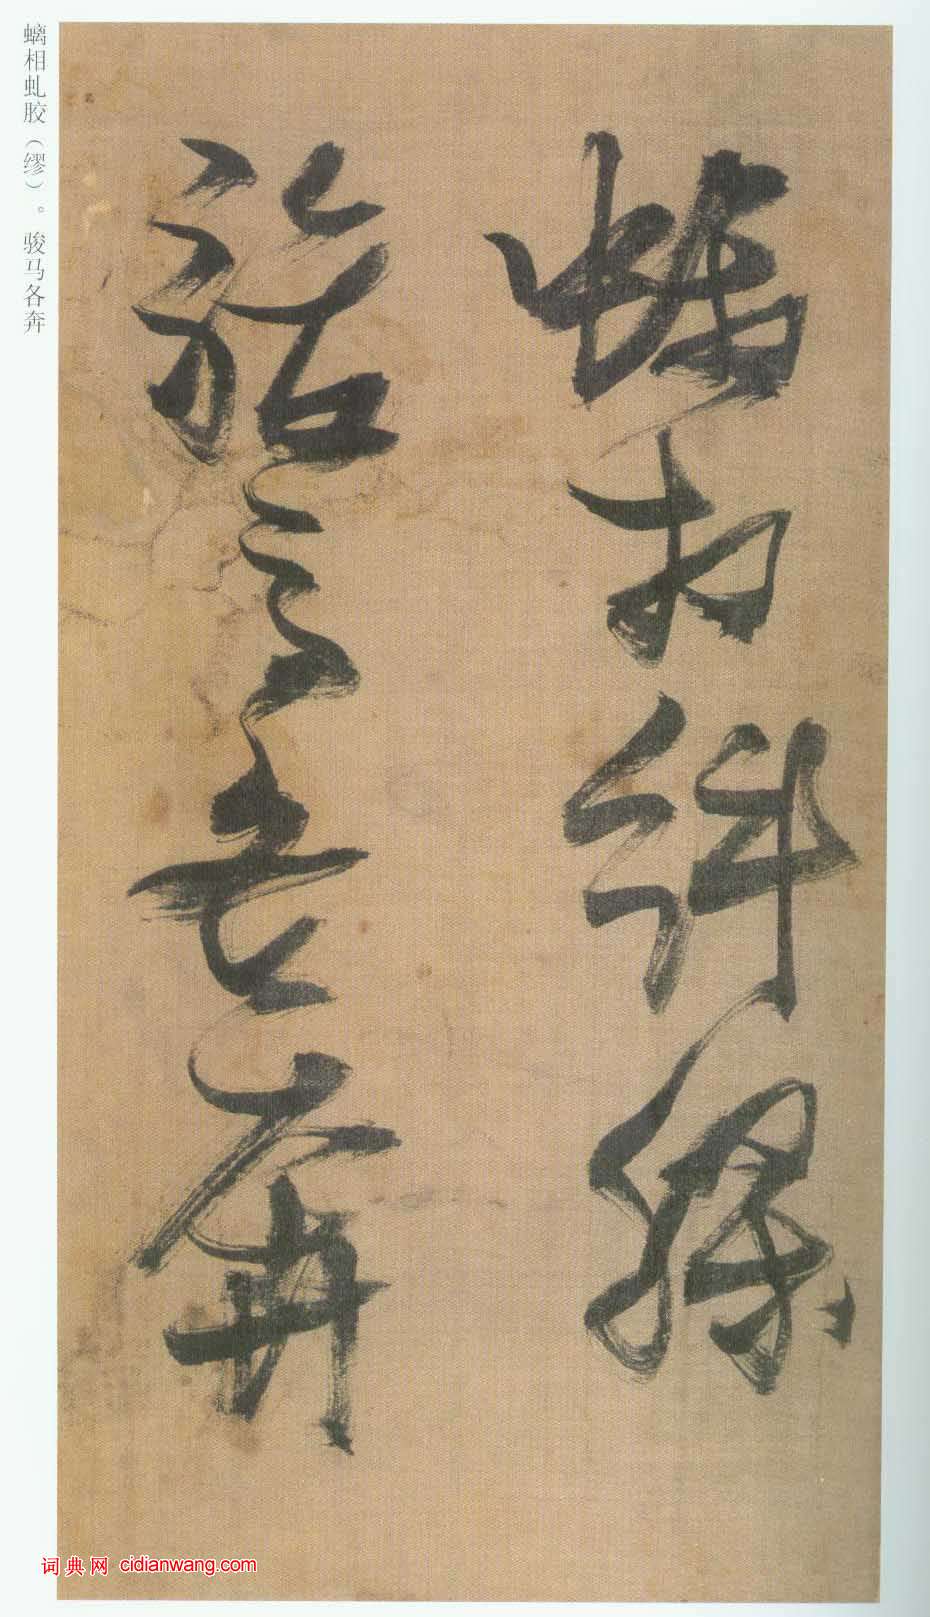 相糾繆
各奔
螭相虬胶（缪）。骏马各奔
词典网 cidianwang.com